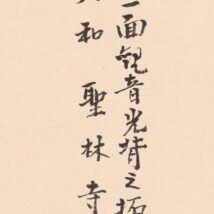 一面観音光背之拓
和聖林寺